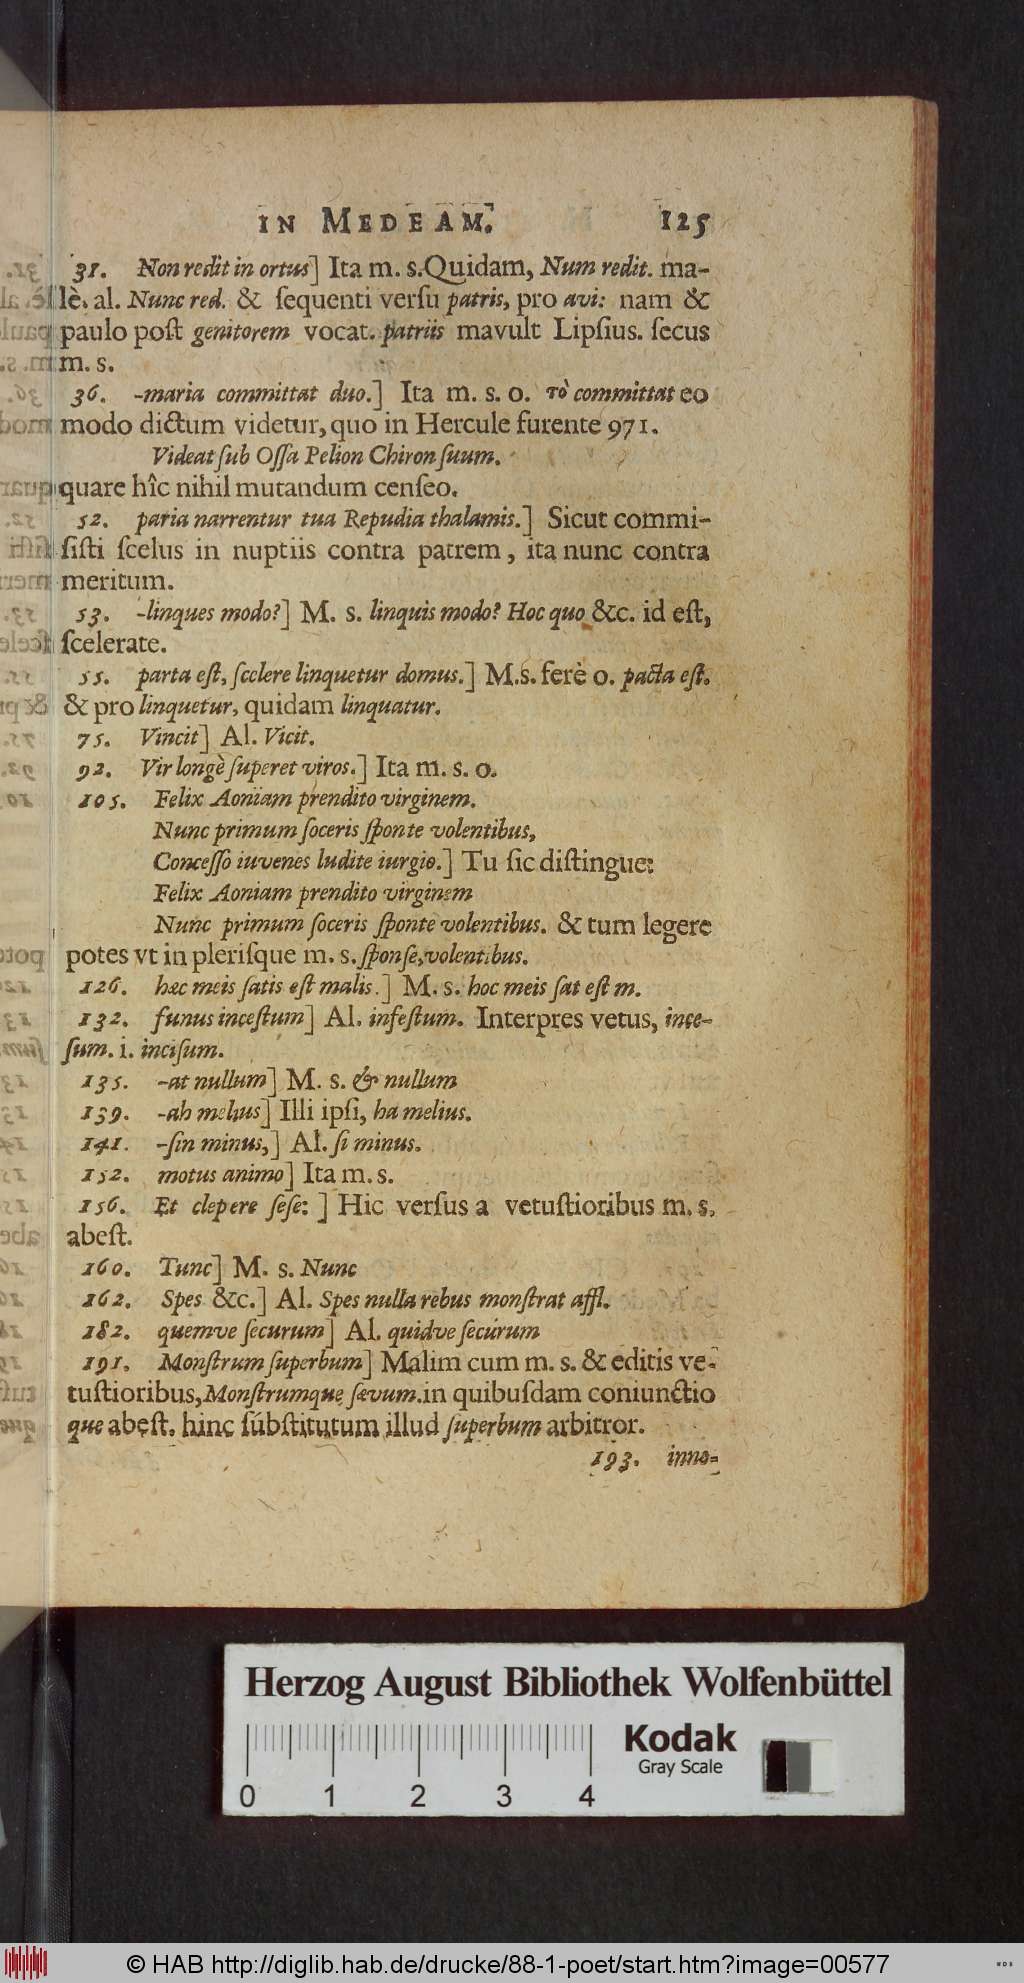 IN MEDEAM. 125
31. Non redit in ortus] Ita m. s. Quidam, Num redit. ma-
lè. al. Nunc red. & ſequenti verſu patris, pro avi: nam &
paulo poſt genitorem vocat. patriis mavult Lipſius. ſecus
m. s.
36. -maria committat duo.] Ita m. s. o. τὸ committat eo
modo dictum videtur, quo in Hercule furente 971.
Videat ſub Oſſa Pelion Chiron ſuum.
quare hîc nihil mutandum cenſeo.
52. paria narrentur tua Repudia thalamis.] Sicut commi-
ſiſti ſcelus in nuptiis contra patrem, ita nunc contra
meritum.
53. -linques modo?] M. s. linquis modo? Hoc quo &c. id eſt,
ſcelerate.
55. parta eſt, ſcelere linquetur domus.] M.s. ferè o. pacta eſt.
& pro linquetur, quidam linquatur.
75. Vincit] Al. Vicit.
92. Vir longè ſuperet viros.] Ita m. s. o.
105. Felix Aoniam prendito virginem.
Nunc primum ſoceris ſponte volentibus,
Conceſſo iuvenes ludite iurgio.] Tu ſic diſtingue:
Felix Aoniam prendito virginem
Nunc primum ſoceris ſponte volentibus. & tum legere
potes vt in pleriſque m. s. ſponſe, volentibus.
126. hæc meis ſatis eſt malis.] M. s. hoc meis ſat eſt m.
132. funus inceſtum] Al. infeſtum. Interpres vetus, ince-
ſum. i. inciſum.
135. -at nullum] M. s. & nullum
139. -ah melius] Illi ipſi, ha melius.
141. -ſin minus,] Al. ſi minus.
152. motus animo] Ita m. s.
156. Et clepere ſeſe: ] Hic verſus a vetuſtioribus m. s.
abeſt.
160. Tunc] M. s. Nunc
162. Spes &c.] Al. Spes nulla rebus monſtrat affl.
182. quemve ſecurum] Al. quidve ſecurum
191. Monſtrum ſuperbum] Malim cum m. s. & editis ve-
tuſtioribus, Monſtrumque ſævum. in quibuſdam coniunctio
que abeſt. hinc ſubſtitutum illud ſuperbum arbitror.
193. inno-
Herzog August Bibliothek Wolfenbüttel
Kodak
Gray Scale
0 1 2 3 4
© HAB http://diglib.hab.de/drucke/88-1-poet/start.htm?image=00577